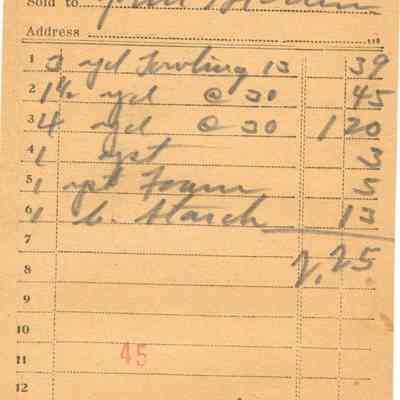 Sold to
Address
1 3 yd Towling 13 39
2 1½ yd @ 30 45
3 4 yd @ 30 1 20
4 1 3
5 1 Foam 5
6 1 b. Starch 13
7 2.25
8
9
10
11 45
12